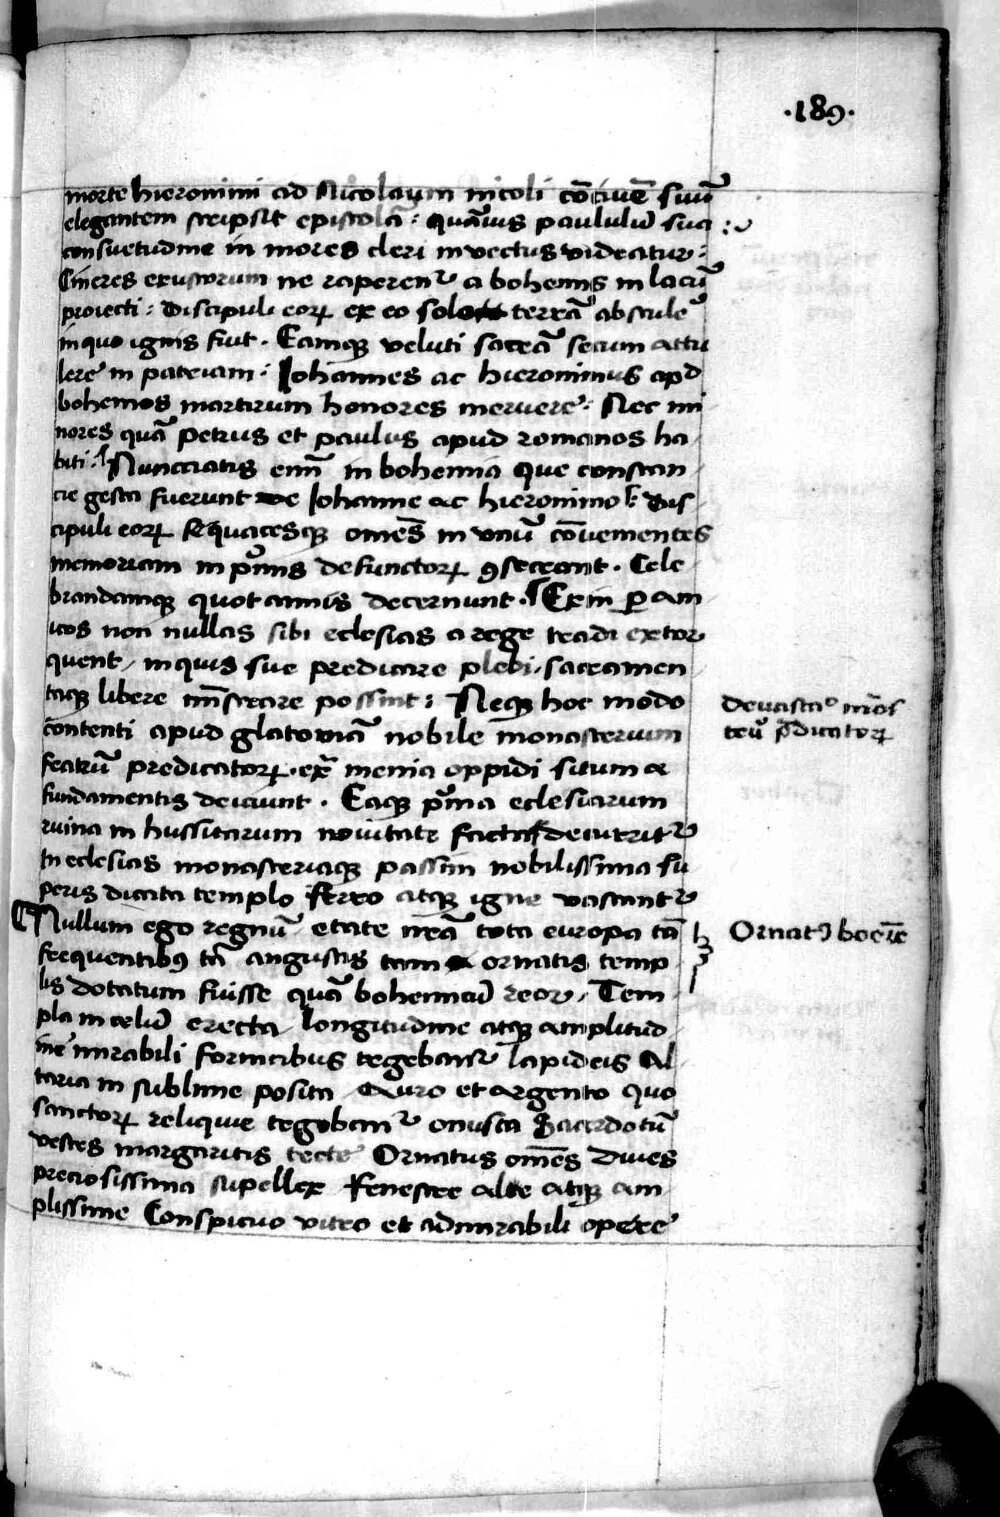 ·189·
morte hieronimi ad Nicolaum nicoli cō̄ciuē suū
elegantem scripsit epistolā : quāuis paululū sua
consuetudine in mores cleri inuectus videatur :
Cineres exustorum ne raperenr̃ a bohemis in lacū
proiecti : Discipuli eorꝝ ex eo solo terrā abstulē
in quo ignis fuit . Eamqꝫ veluti sacrā secum attu
lere in patriam : Iohannes ac hieronimus apd
bohemos martirum honores meruere : Nec mi
nores quā petrus et paulus apud romanos ha
biti : Nunciatis enī in bohemia que constan
cie gesta fuerunt de Iohanne ac hieronimo : Dis
cipuli eorꝝ sequacesqꝫ omēs in vnū cōuenientes
memoriam in pͥmis defunctorꝝ ꝯsecrant . Cele
brandamqꝫ quotannis decernunt . Exin ꝑ am
icos non nullas sibi eclesias a rege tradi extor
quent , in quis sue predicare plebi , sacramen
taqꝫ libere mīstrare possint : Neqꝫ hoc modo
contenti apud glatoviā nobile monasterium
fratrū predicatorꝝ . ex̄ menia oppidi situm a
fundamentis deiciunt . Eaqꝫ pͥma eclesiarum
ruina in hussitarum nouitate facta decurritr̃
In eclesias monasteriaqꝫ passim nobilissima su
peris dicata templo ferro atqꝫ igne vastantr̃
Nullum ego regnū etate nr̄a tota europa tā
frequentibꝰ tā angustis tam ornatis temp
lis dotatum fuisse quā bohemicū reor , Tem
pla in celū erecta longitudine atqꝫ amplitud
ine mirabili fornicibus tegebanr̃ lapideis Al
taria in sublime posita Auro et argento quo
sanctorꝝ reliquie tegebanr̃ onusta Sacerdotū
vestes margaritis tecte Ornatus omēs diues
preciosissima supellex Fenestre alte atqꝫ am
plissime Conspicuo vitro et admirabili opere
Deuastaꝰ mōs
teriū p̄dicatorꝝ
Ornatꝰ boeīe